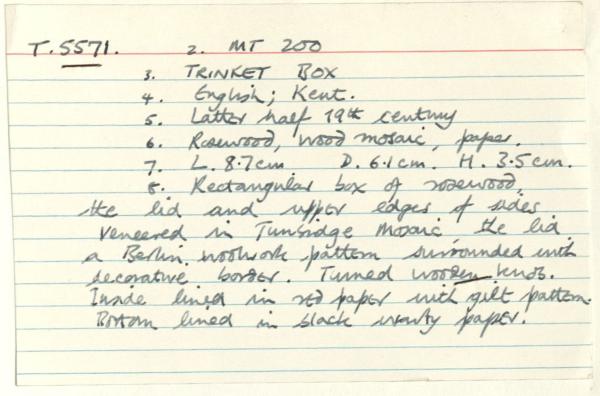 T.5571. 2. MT 200
3. TRINKET BOX
4. English; Kent.
5. Latter half 19th century
6. Rosewood, wood mosaic, paper.
7. L. 8.7cm D. 6.1cm. H. 3.5cm.
8. Rectangular box of rosewood,
the lid and upper edges of sides
veneered in Tunbridge Mosaic the lid
a Berlin woolwork pattern surrounded with
decorative border. Turned wooden knob.
Inside lined in red paper with gilt pattern.
Bottom lined in black paper.